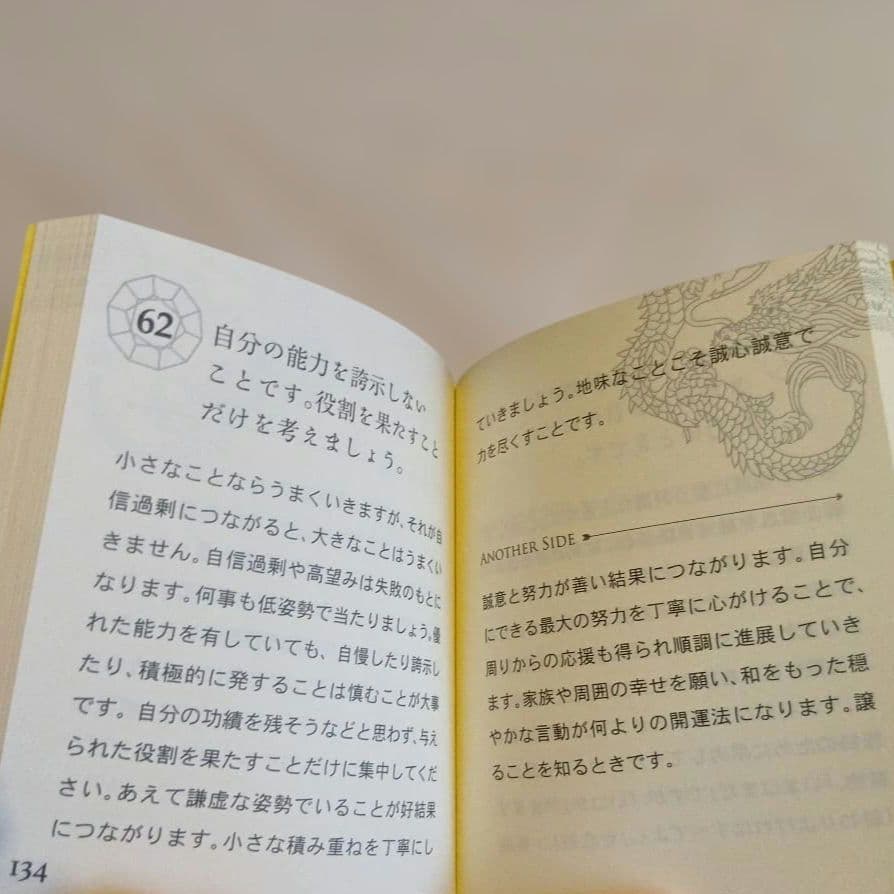 62
自分の能力を誇示しない
ことです。役割を果たすこと
だけを考えましょう。
小さなことならうまくいきますが、それが自
信過剰につながると、大きなことはうまくい
きません。自信過剰や高望みは失敗のもとに
なります。何事も低姿勢で当たりましょう。優
れた能力を有していても、自慢したり誇示し
たり、積極的に発することは慎むことが大事
です。自分の功績を残そうなどと思わず、与え
られた役割を果たすことだけに集中してくだ
さい。あえて謙虚な姿勢でいることが好結果
につながります。小さな積み重ねを丁寧にし
134
ていきましょう。地味なことこそ誠心誠意で
力を尽くすことです。
ANOTHER SIDE
誠意と努力が善い結果につながります。自分
にできる最大の努力を丁寧に心がけることで、
周りからの応援も得られ順調に進展していき
ます。家族や周囲の幸せを願い、和をもった穏
やかな言動が何よりの開運法になります。譲
ることを知るときです。